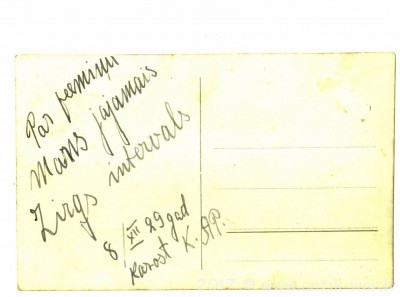 Par peemiņu
Mans jājamais
Zirgs intervals
8/XII 29 gad
Karost K. AP.